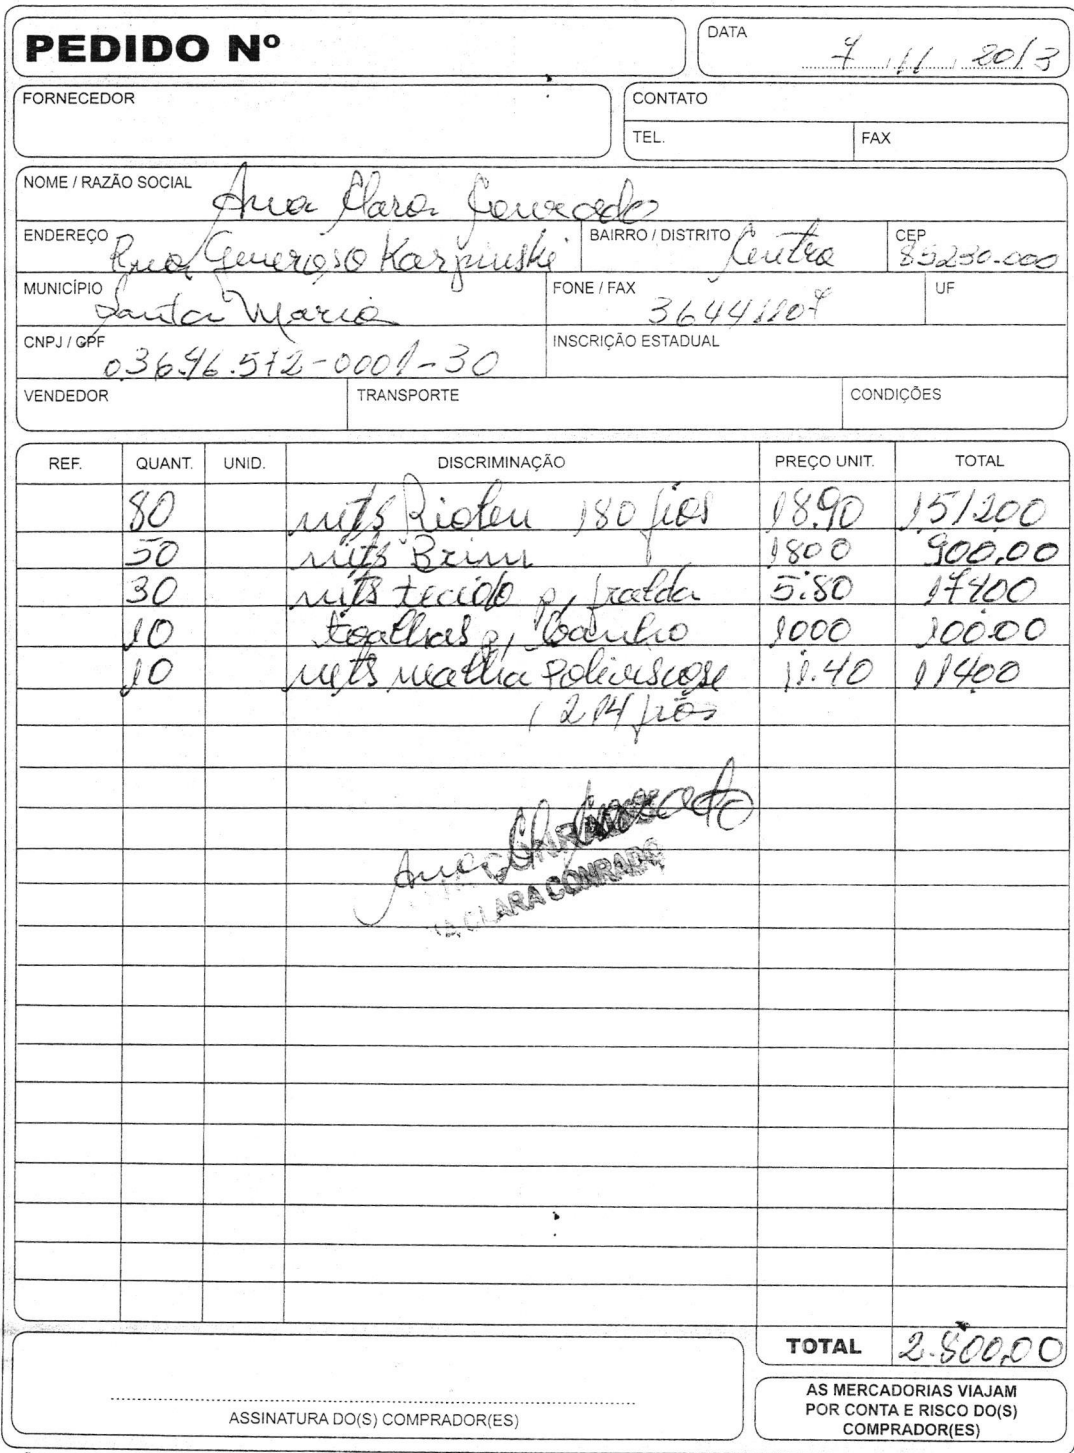 PEDIDO Nº
DATA
7 11 2013
FORNECEDOR
CONTATO
TEL.
FAX
NOME / RAZÃO SOCIAL Ana Clara Conrado
ENDEREÇO Rua Generoso Karpinski
BAIRRO / DISTRITO Centro
CEP 85230-000
MUNICÍPIO Santa Maria
FONE / FAX 36441107
UF
CNPJ / CPF
INSCRIÇÃO ESTADUAL
VENDEDOR
TRANSPORTE
CONDIÇÕES
REF. QUANT. UNID. DISCRIMINAÇÃO PREÇO UNIT. TOTAL
80 mts 180 fios 18.90 151200
50 mts Brim 1800 900,00
30 mts tecido p/ fralda 5.80 17400
10 toalhas p/ banho 1000 10000
10 mts malha Poliviscose 11.40 11400
214 fios
Ana Clara Conrado
CLARA CONRADO
TOTAL 2.800,00
ASSINATURA DO(S) COMPRADOR(ES)
AS MERCADORIAS VIAJAM
POR CONTA E RISCO DO(S)
COMPRADOR(ES)